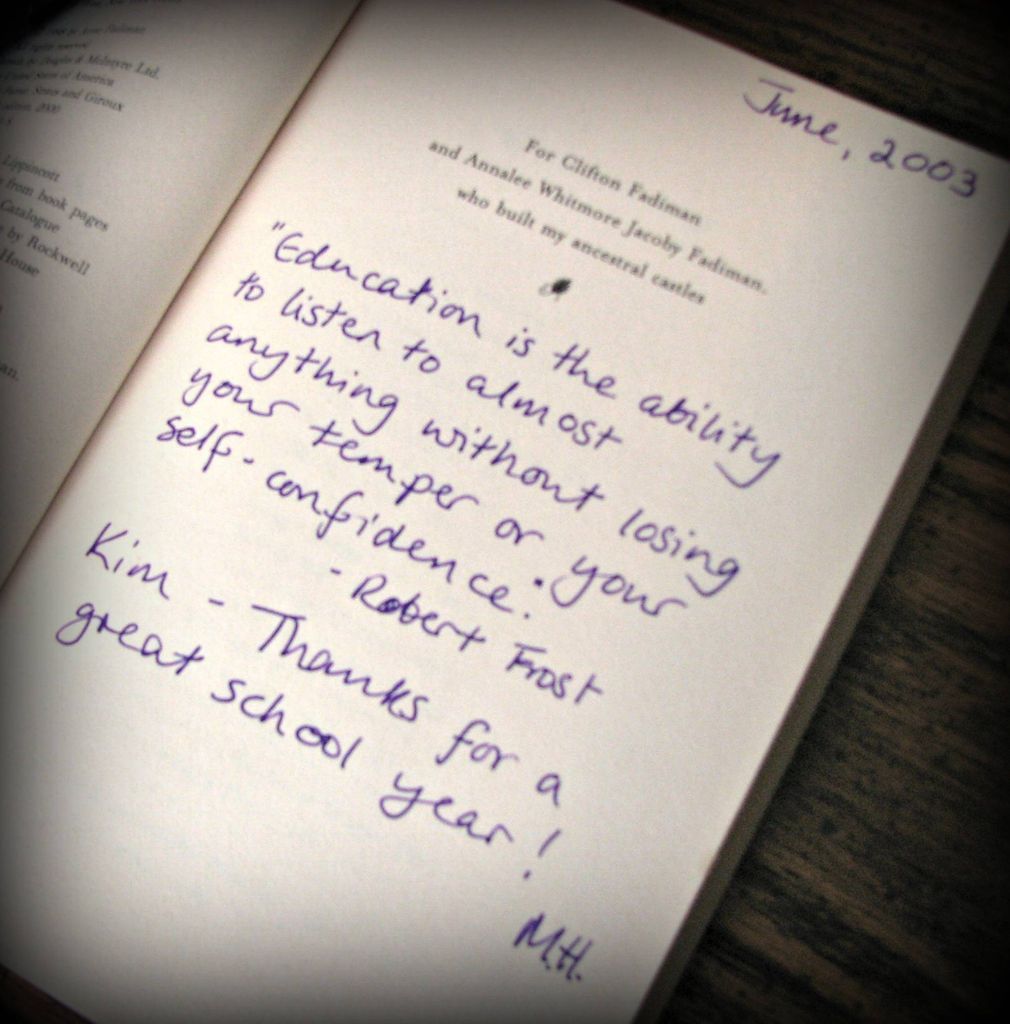 rights reserved
Douglas & McIntyre Ltd.
United States of America
Farrar, Straus and Giroux
edition, 2000
Lippincott
from book pages
Catalogue
by Rockwell
House
an.
June, 2003
For Clifton Fadiman
and Annalee Whitmore Jacoby Fadiman,
who built my ancestral castles
"Education is the ability
to listen to almost
anything without losing
your temper or your
self-confidence."
- Robert Frost
Kim - Thanks for a
great school year!
M.H.